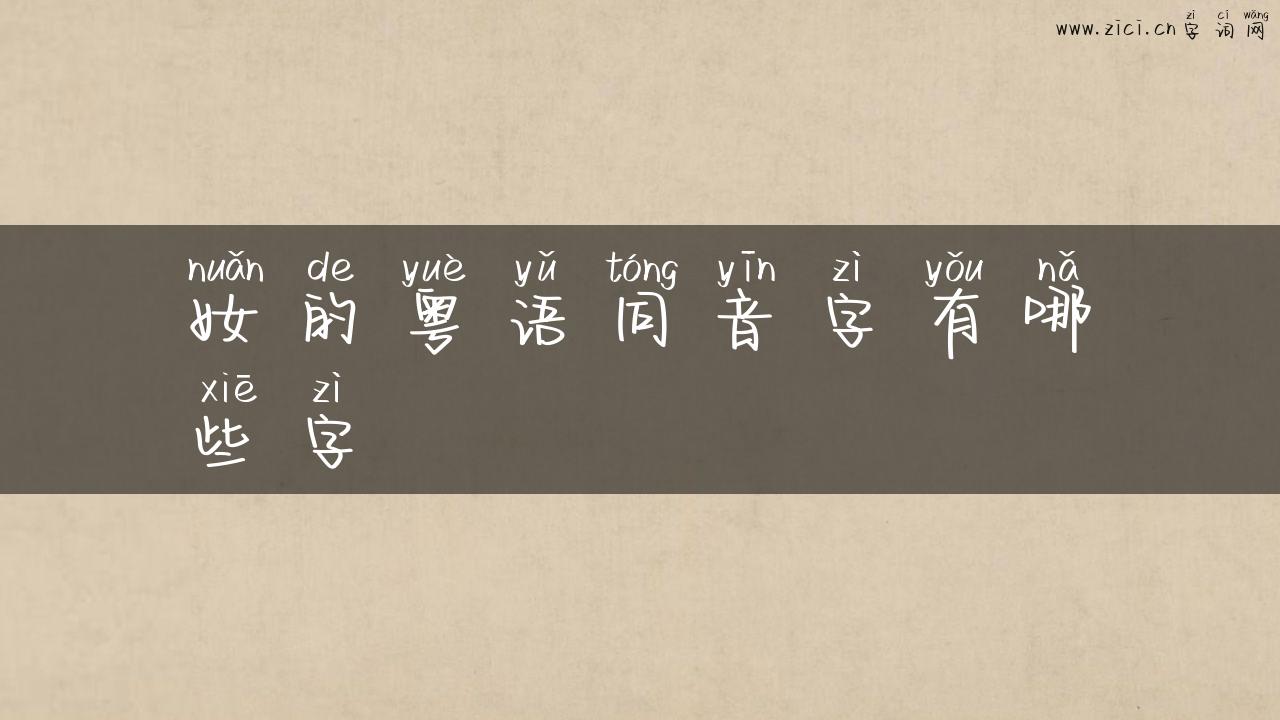 zì cí wǎng
www.zici.cn 字词网
nuǎn de yuè yǔ tóng yīn zì yǒu nǎ
奻的粤语同音字有哪
xiē zì
些字